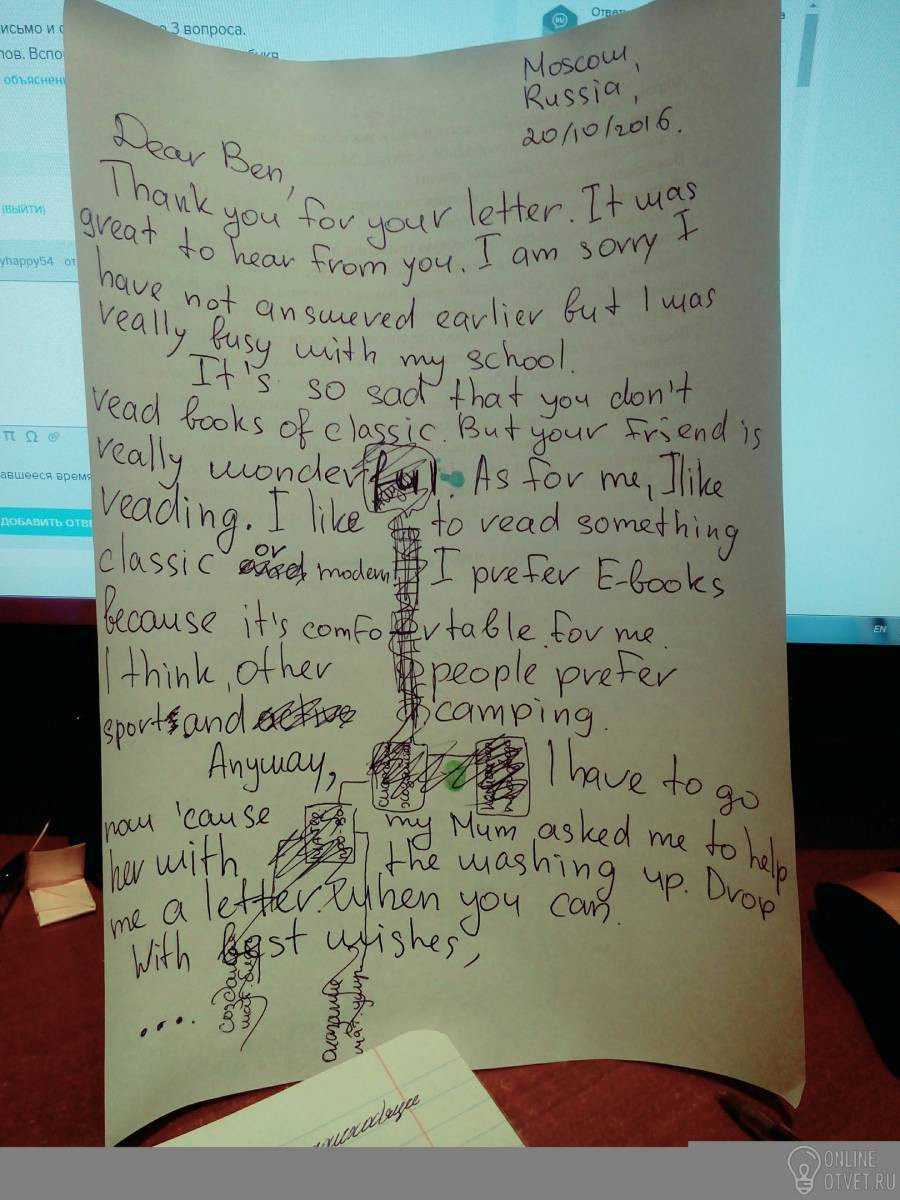 исьмо и
3 вопроса.
лов.
объяснен
Отве
RU
(ВЫЙТИ)
yhappy54 от
π Ω
авшееся время
ДОБАВИТЬ ОТВ
EN
Moscow,
Russia,
20/10/2016.
Dear Ben,
Thank you for your letter. It was
great to hear from you. I am sorry I
have not answered earlier but I was
really busy with my school.
It's so sad that you don't
read books of classic. But your friend is
really wonderful. As for me, I like
reading. I like to read something
classic or modern. I prefer E-books
because it's comfortable for me.
I think, other people prefer
sport and camping.
Anyway, I have to go
now 'cause my Mum asked me to help
her with the washing up. Drop
me a letter when you can.
With best wishes,
....
ONLINE
OTVET.RU